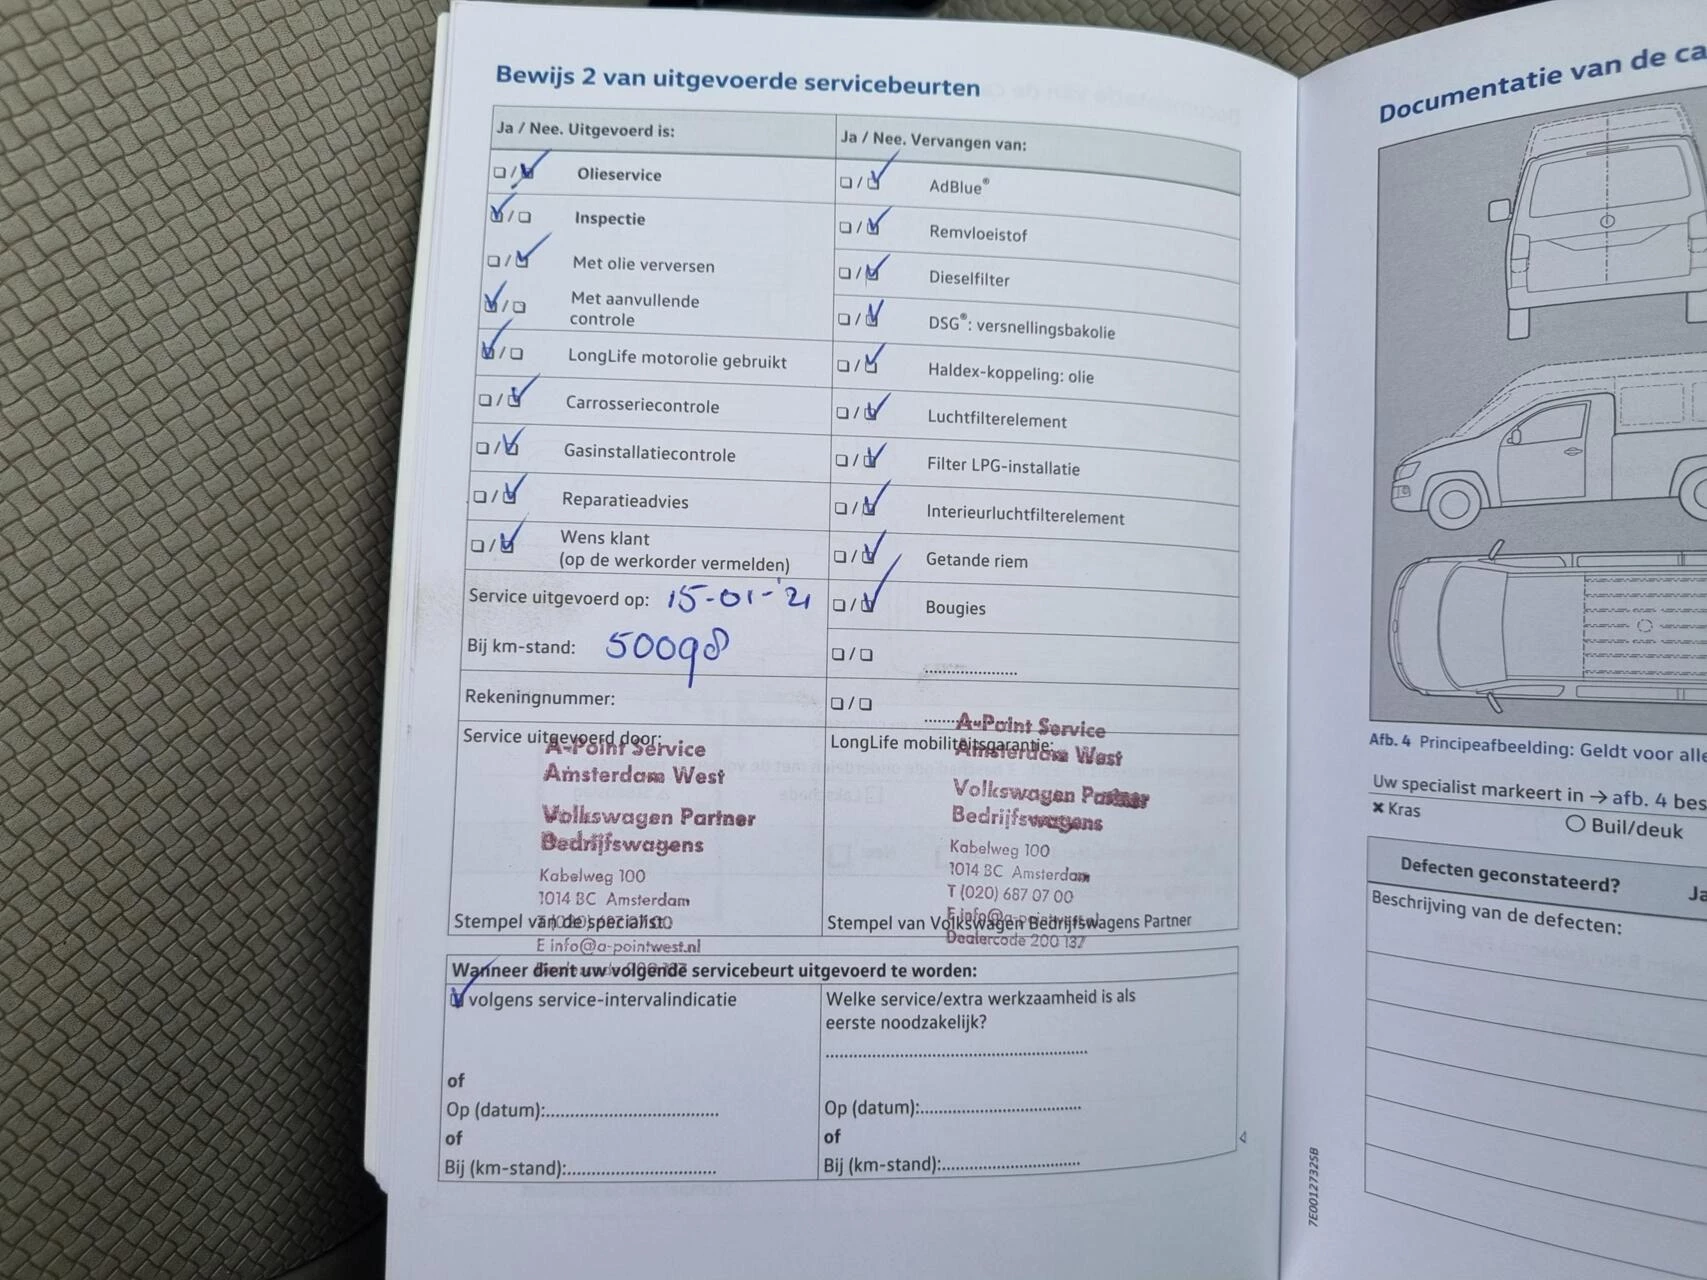 Bewijs 2 van uitgevoerde servicebeurten
Ja / Nee. Uitgevoerd is:
Olieservice
Inspectie
Met olie verversen
Met aanvullende
controle
LongLife motorolie gebruikt
Carrosseriecontrole
Gasinstallatiecontrole
Reparatieadvies
Wens klant
(op de werkorder vermelden)
Service uitgevoerd op: 15-01-'21
Bij km-stand: 50098
Rekeningnummer:
Service uitgevoerd door:
A-Point Service
Amsterdam West
Volkswagen Partner
Bedrijfswagens
Kabelweg 100
1014 BC Amsterdam
Stempel van de specialist:
E info@a-pointwest.nl
Ja / Nee. Vervangen van:
AdBlue®
Remvloeistof
Dieselfilter
DSG®: versnellingsbakolie
Haldex-koppeling: olie
Luchtfilterelement
Filter LPG-installatie
Interieurluchtfilterelement
Getande riem
Bougies
LongLife mobiliteitsgarantie:
A-Point Service
Amsterdam West
Volkswagen Partner
Bedrijfswagens
Kabelweg 100
1014 BC Amsterdam
T (020) 687 07 00
Stempel van Volkswagen Bedrijfswagens Partner
Dealercode 200 137
Wanneer dient uw volgende servicebeurt uitgevoerd te worden:
volgens service-intervalindicatie
of
Op (datum):
of
Bij (km-stand):
Welke service/extra werkzaamheid is als
eerste noodzakelijk?
Op (datum):
of
Bij (km-stand):
7E0012732SB
Documentatie van de ca
Afb. 4 Principeafbeelding: Geldt voor alle
Uw specialist markeert in → afb. 4 bes
✖ Kras
○ Buil/deuk
Defecten geconstateerd? Ja
Beschrijving van de defecten: